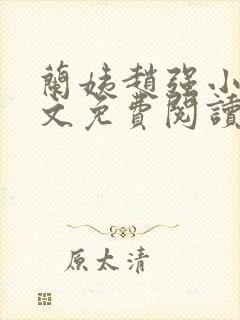 蘭姨趙強小
文免費閱讀
原太清